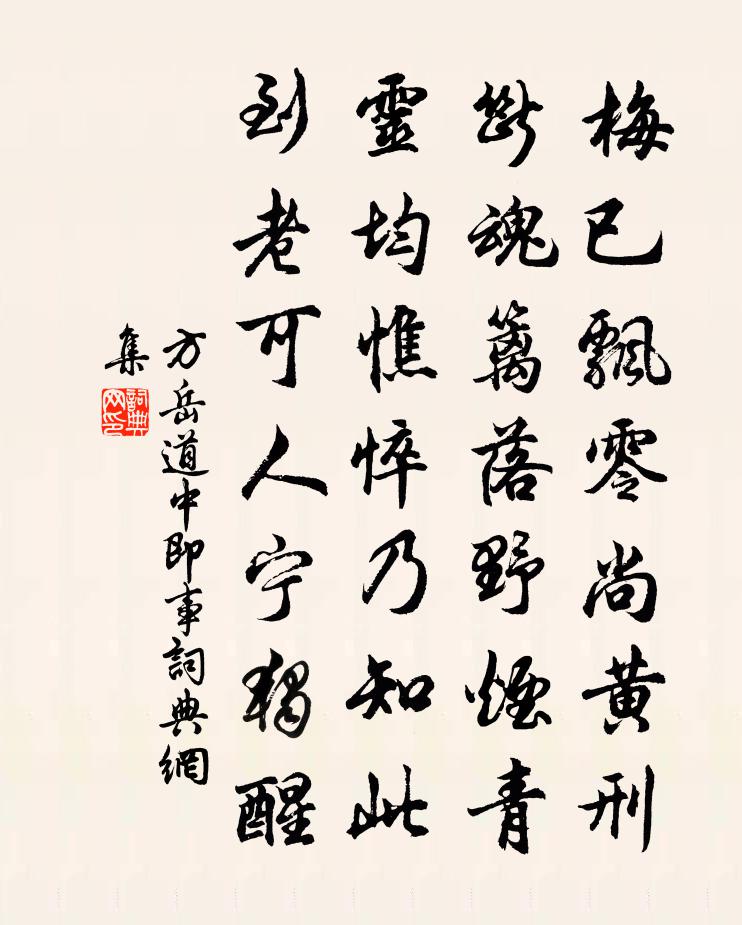 梅已飄零尚黄刑
斷魂籬落野煙青
靈均憔悴乃知此
到老可人宁獨醒
方岳道中即事詞典網
集
詞典
网印